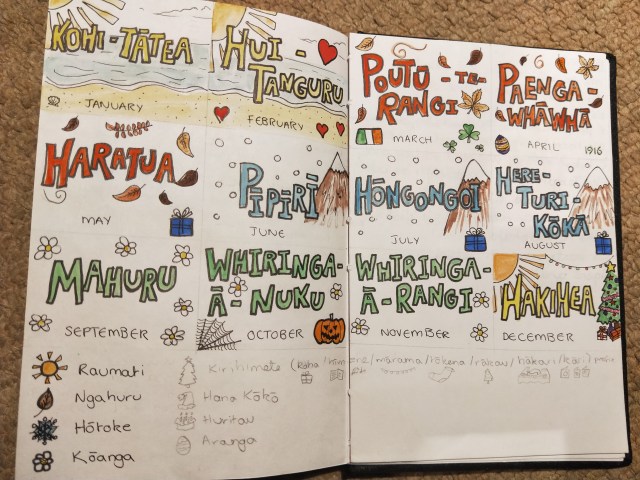 KOHI-TĀTEA
JANUARY
HUI-
TANGURU
FEBRUARY
POUTŪ-TE-
RANGI
MARCH
PAENGA-
WHĀWHĀ
APRIL
1916
HARATUA
MAY
PIPĪRĪ
JUNE
HŌNGONGOI
JULY
HERE-
TURI-
KŌKĀ
AUGUST
MAHURU
SEPTEMBER
WHIRINGA-
Ā-NUKU
OCTOBER
WHIRINGA-
Ā-RANGI
NOVEMBER
HAKIHEA
DECEMBER
Raumati
Ngahuru
Hōtoke
Kōanga
Kirihimete (koha/ /mārama/tōkena/rākau/ /kāri)
Hana Kōkō
Huritau
Aranga